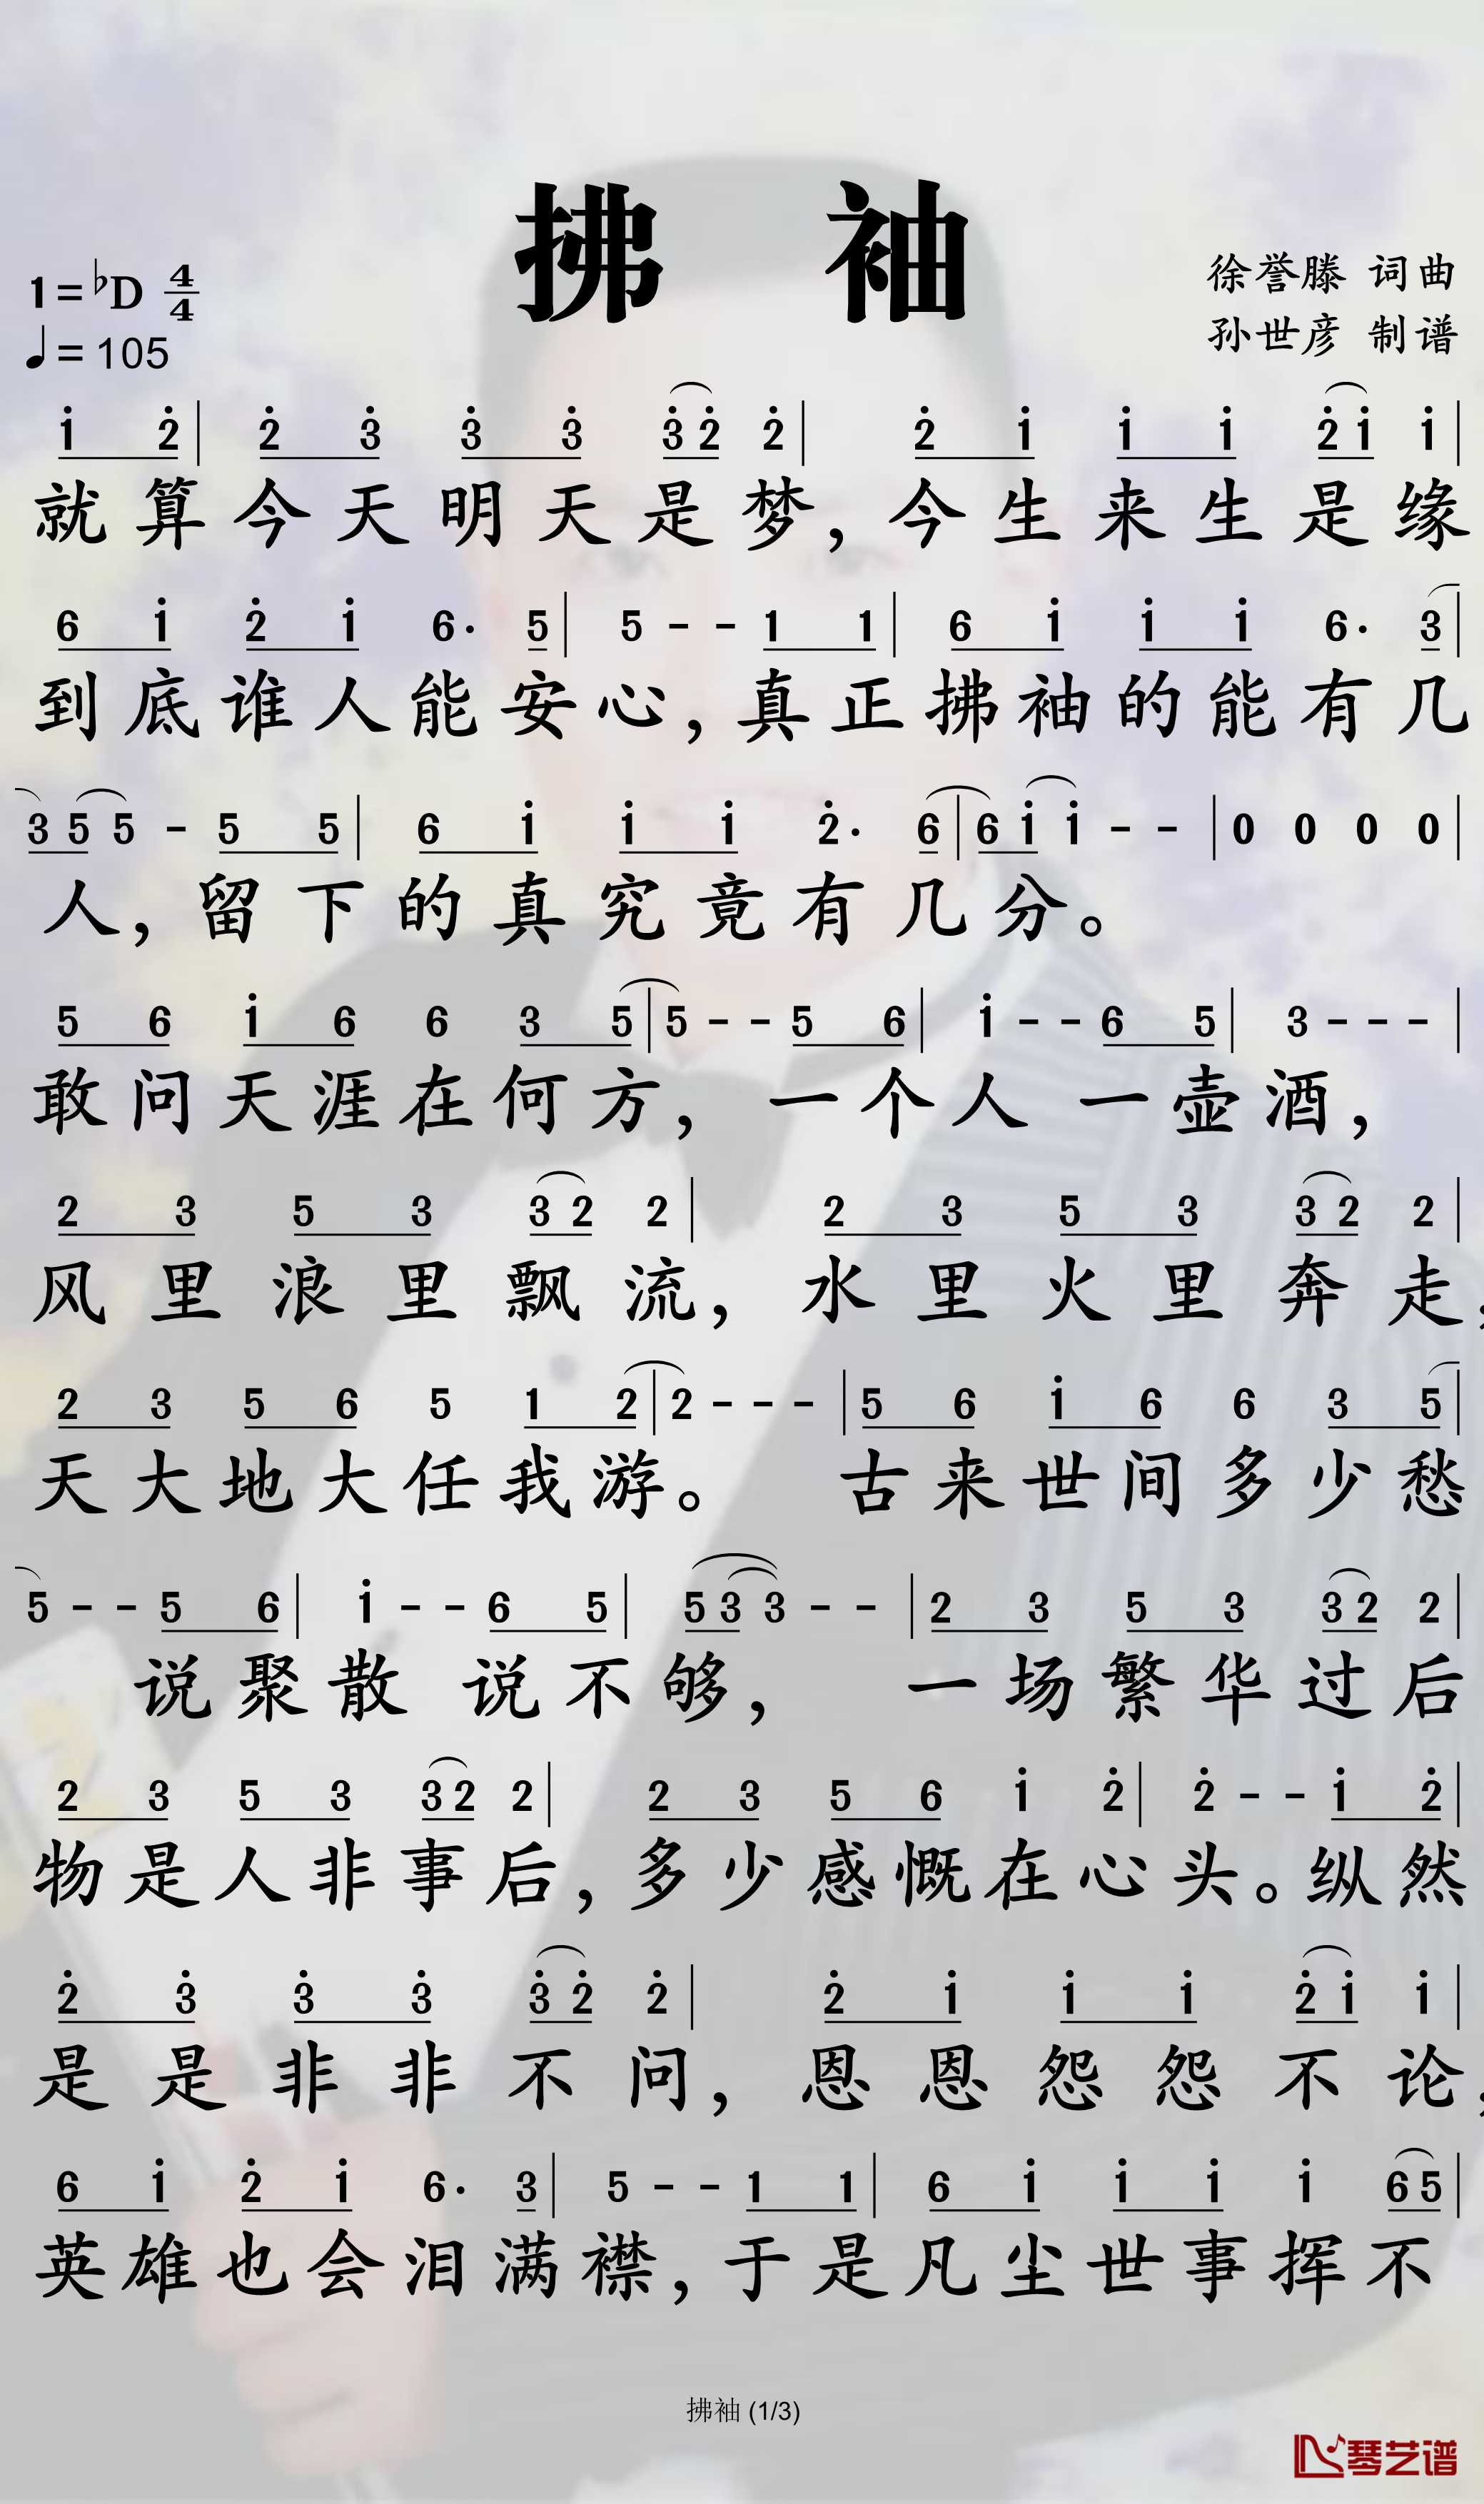 拂 袖
1=♭D 4/4
♩=105
徐誉滕 词曲
孙世彦 制谱
i 2 | 2 3 3 3 3 2 2 | 2 i i i 2 i i |
就算今天明天是梦，今生来生是缘
6 i 2 i 6· 5 | 5 - - 1 1 | 6 i i i 6· 3 |
到底谁人能安心，真正拂袖的能有几
3 5 5 - 5 5 | 6 i i i 2· 6 | 6 i i - - | 0 0 0 0 |
人，留下的真究竟有几分。
5 6 i 6 6 3 5 | 5 - - 5 6 | i - - 6 5 | 3 - - - |
敢问天涯在何方，一个人 一壶酒，
2 3 5 3 3 2 2 | 2 3 5 3 3 2 2 |
风里浪里飘流，水里火里奔走，
2 3 5 6 5 1 2 | 2 - - - | 5 6 i 6 6 3 5 |
天大地大任我游。 古来世间多少愁
5 - - 5 6 | i - - 6 5 | 5 3 3 - - | 2 3 5 3 3 2 2 |
说聚散 说不够， 一场繁华过后
2 3 5 3 3 2 2 | 2 3 5 6 i 2 | 2 - - i 2 |
物是人非事后，多少感慨在心头。纵然
2 3 3 3 3 2 2 | 2 i i i 2 i i |
是是非非不问，恩恩怨怨不论，
6 i 2 i 6· 3 | 5 - - 1 1 | 6 i i i i 6 5 |
英雄也会泪满襟，于是凡尘世事挥不
拂袖 (1/3)
琴艺谱